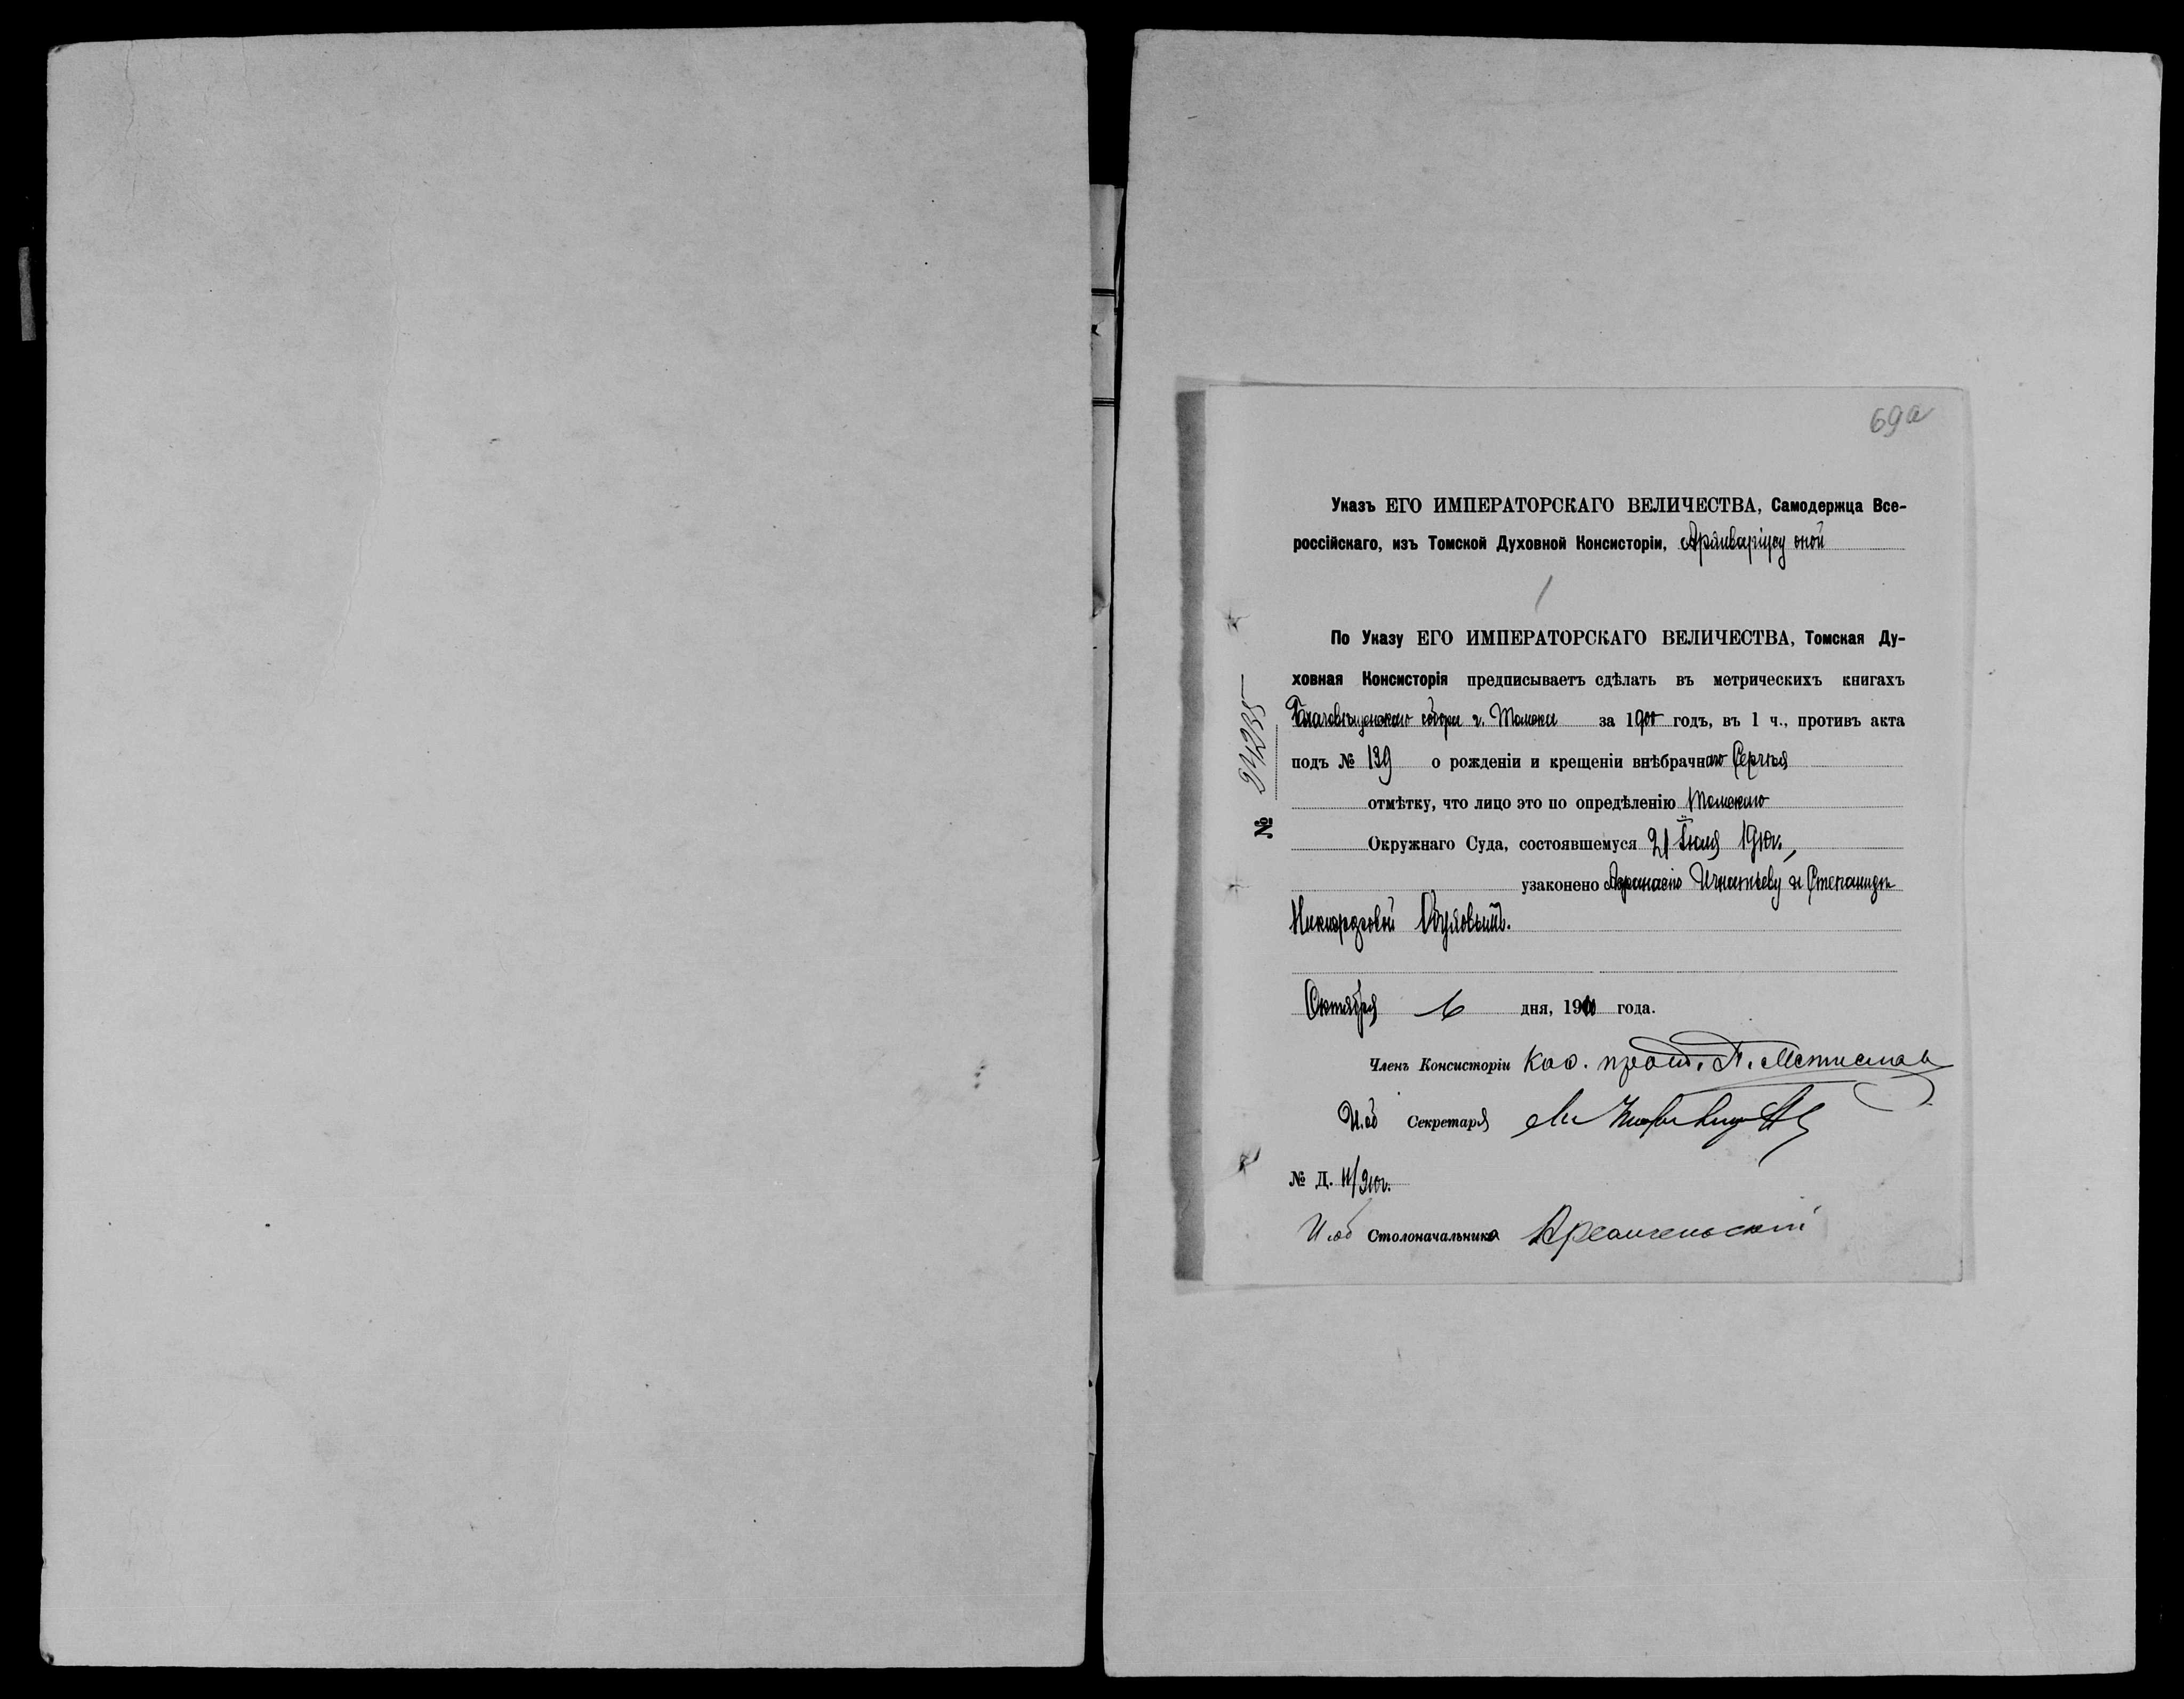 69а
Указъ ЕГО ИМПЕРАТОРСКАГО ВЕЛИЧЕСТВА, Самодержца Все-
россійскаго, изъ Томской Духовной Консисторіи, Архиваріусу оной
По Указу ЕГО ИМПЕРАТОРСКАГО ВЕЛИЧЕСТВА, Томская Ду-
ховная Консисторія предписываетъ сдѣлать въ метрическихъ книгахъ
Благовѣщенскаго собора г. Томска за 1900 годъ, въ 1 ч., противъ акта
подъ № 139 о рожденіи и крещеніи внѣбрачнаго Сергѣя
отмѣтку, что лицо это по опредѣленію Томскаго
Окружнаго Суда, состоявшемуся 21 Іюля 1910г.,
узаконено Афанасію Игнатьеву и Степанидѣ
Никифоровой
Октября 6 дня, 1910 года.
Членъ Консисторіи Каѳ. прот.
И. об Секретаря
№ Д. 11/910г.
И об Столоначальника Архангельскій
№ 24235